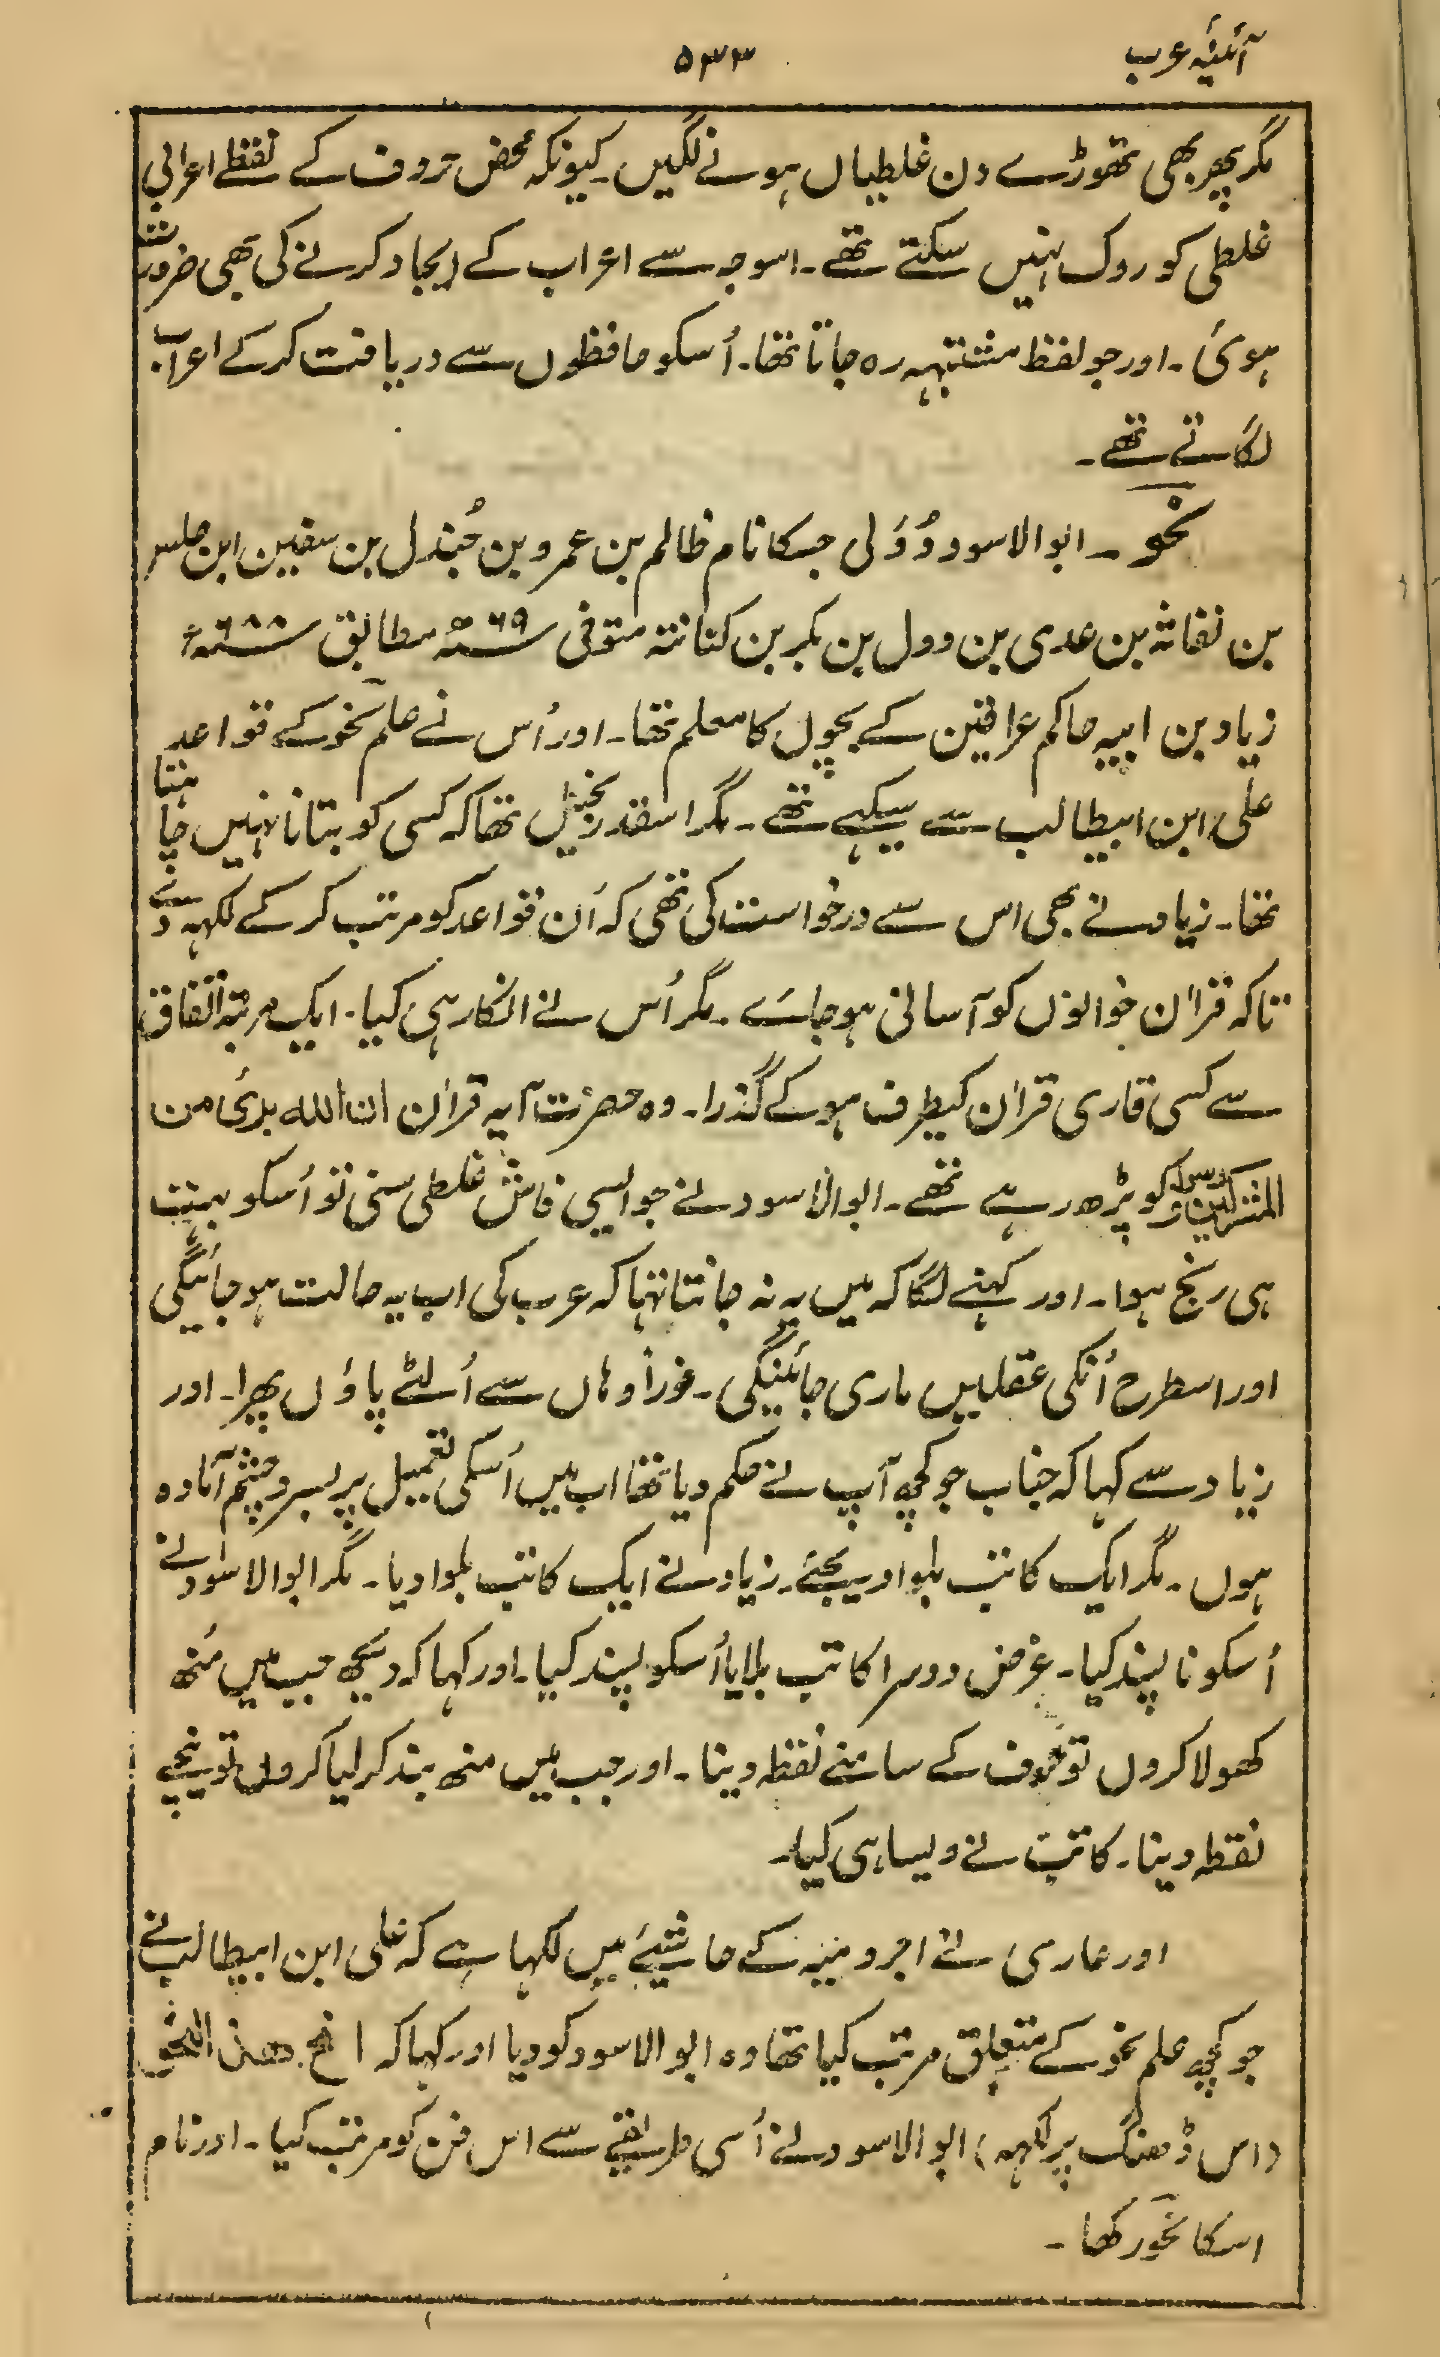 آئینۂ عرب
۵۳۳
مگر پھر بھی تھوڑے دن غلطیاں ہونے لگیں۔ کیونکہ محض حروف کے نقطے اعرابی
غلطی کو روک نہیں سکتے تھے۔ اسوجہ سے اعراب کے ایجاد کرنے کی بھی ضرورت
ہوئی۔ اور جو لفظ مشتبہہ رہ جاتا تھا۔ اُسکو حافظوں سے دریافت کرکے اعراب
لگاتے تھے۔
نحو۔ ابوالاسود دُوَلی جسکا نام ظالم بن عمرو بن جُندل بن سفین ابن حلس
بن نفاثہ بن عدی بن دول بن بکر بن کنانتہ متوفی ۶۹ھ مطابق ۶۸۸ء
زیاد بن ابیہ حاکم عراقین کے بچوں کا معلم تھا۔ اور اُس نے علم نحو کے قواعد
علی ابن ابیطالب سے سیکہے تھے۔ مگر اسقدر بخیل تھا کہ کسی کو بتانا نہیں چاہتا
تھا۔ زیاد نے بھی اس سے درخواست کی تھی کہ اُن قواعد کو مرتب کرکے لکہہ دے
تاکہ قرآن خوانوں کو آسانی ہوجاے۔ مگر اُس نے انکار ہی کیا۔ ایک مرتبہ اتفاق
سے کسی قاری قرآن کیطرف ہوکے گذرا۔ وہ حضرت آیہ قرآن ان الله بریٔ من
المشرکین ورسولہ کو پڑھ رہے تھے۔ ابوالاسود نے جو ایسی فاش غلطی سنی تو اُسکو بہت
ہی رنج ہوا۔ اور کہنے لگا کہ میں یہ نہ جانتا تہا کہ عرب کی اب یہ حالت ہوجائیگی
اور اسطرح اُنکی عقلیں ماری جائینگی۔ فوراً وہاں سے اُلٹے پاؤں پھرا۔ اور
زیاد سے کہا کہ جناب جو کچھ آپ نے حکم دیا تھا اب میں اُسکی تعمیل پر بسروچشم آمادہ
ہوں۔ مگر ایک کاتب بلوا دیجئے۔ زیاد نے ایک کاتب بلوادیا۔ مگر ابوالاسود نے
اُسکو ناپسند کیا۔ غرض دوسرا کاتب بلایا اُسکو پسند کیا۔ اور کہا کہ دیکھ جب میں مُنھ
کھولا کروں تو حرف کے سامنے نقطہ دینا۔ اور جب میں منھ بند کرلیا کروں تو نیچے
نقطہ دینا۔ کاتب نے ویسا ہی کیا۔
اور عماری نے اجرومیہ کے حاشیئے میں لکہا ہے کہ علی ابن ابیطالب نے
جو کچھ علم نحو کے متعلق مرتب کیا تھا وہ ابوالاسود کو دیا اور کہا کہ انح ھذا النحو
(اس ڈھنگ پر لکہہ) ابوالاسود نے اُسی طریقے سے اس فن کو مرتب کیا۔ اور نام
اسکا نحو رکھا۔